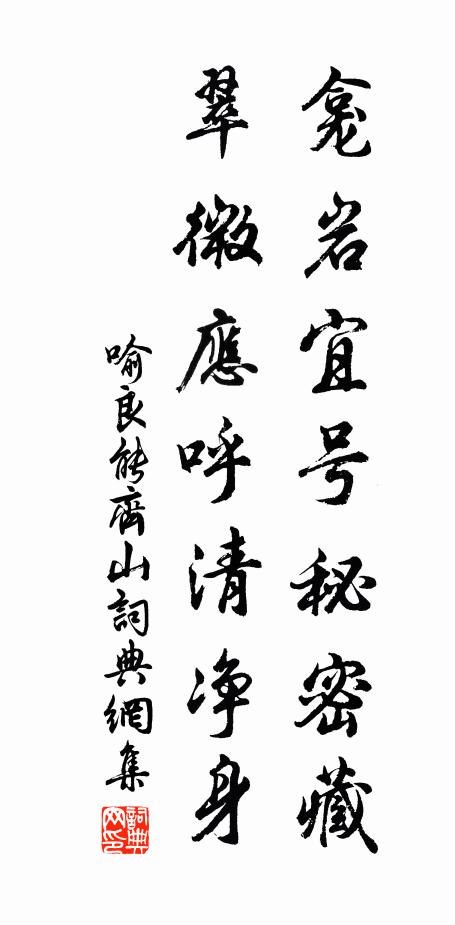 龛岩宜号秘密藏
翠微應呼清净身
喻良能齊山詞典網集
詞典網印